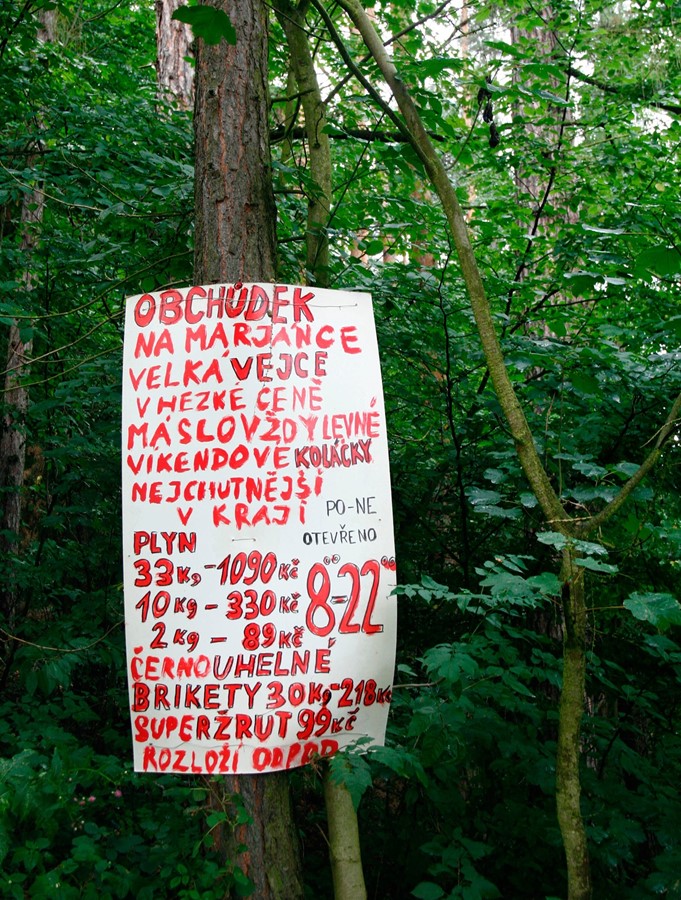 OBCHŮDEK
NA MARJÁNCE
VELKÁ VEJCE
V HEZKÉ CENĚ
MÁSLO VŽDY LEVNĚ
VÍKENDOVÉ KOLÁČKY
NEJCHUTNĚJŠÍ
V KRAJI
PO-NE
OTEVŘENO
8⁰⁰-22⁰⁰
PLYN
33Kg-1090Kč
10Kg-330Kč
2Kg-89Kč
ČERNOUHELNÉ
BRIKETY 30Kg-218Kč
SUPERŽRUT 99Kč
ROZLOŽÍ ODPAD